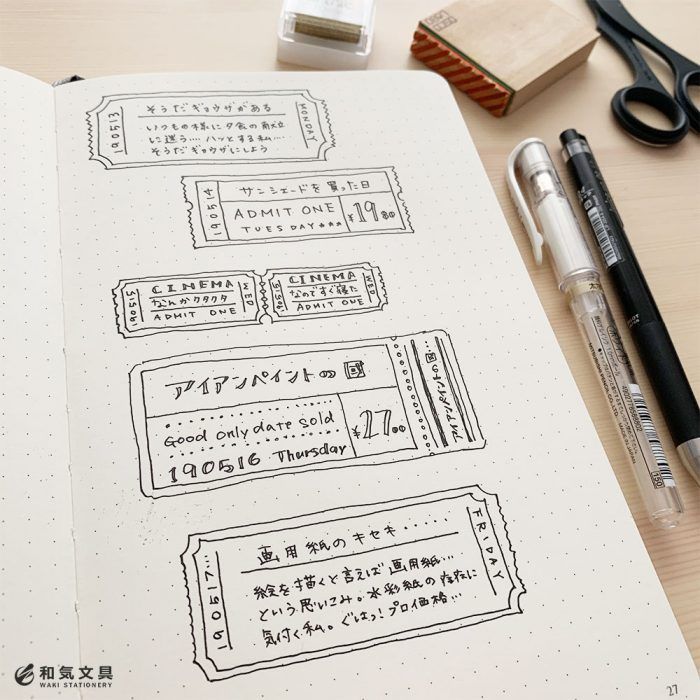 190513
そうだギョウザがある
いつもの様に夕食の献立
に迷う…ハッとする私…
そうだギョウザにしよう
MONDAY
190514
サンシェードを買った日
ADMIT ONE
TUESDAY★★★
¥1980
190515
CINEMA
なんかクタクタ
ADMIT ONE
WED
190515
CINEMA
なのですぐ寝た
ADMIT ONE
WED
アイアンペイントの回
Good only date sold
190516 Thursday
¥2700
アイアンペイントの回…
190517…
画用紙のキセキ・・・・・
絵を描くと言えば画用紙…
という思いこみ。水彩紙の存在に
気付く私。ぐはっ!プロ価格…
FRIDAY
和気文具
WAKI STATIONERY
27